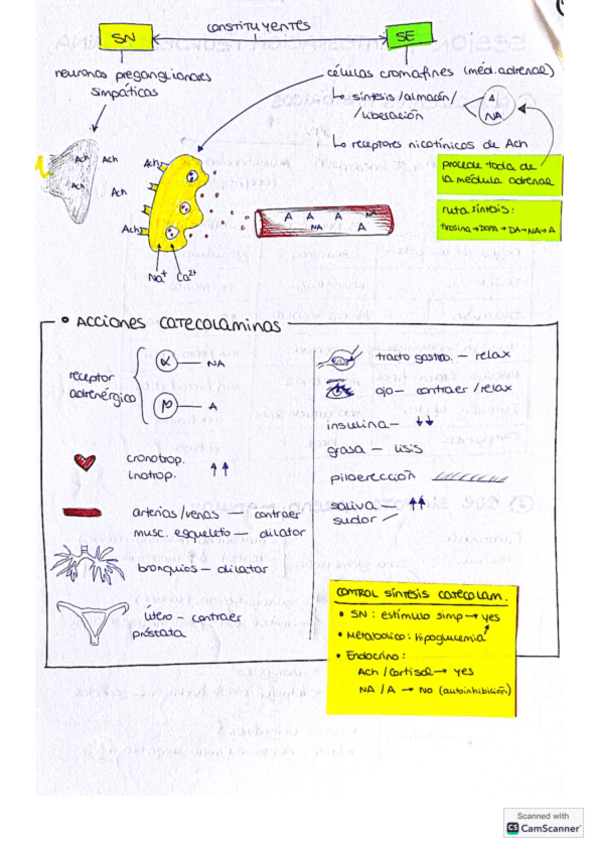 constituyentes
SN
SE
neuronas preganglionares
simpáticas
células cromafines (méd. adrenal)
↳ síntesis/almacén/
/liberación
A
NA
↳ receptores nicotínicos de Ach
procede toda de
la médula adrenal
ruta síntesis:
tirosina→DOPA→DA→NA→A
Ach
Ach
Ach
Ach
Ach
Ach
A A A NA
NA A
Na⁺ Ca²⁺
• ACCIONES CATECOLAMINAS
receptor
adrenérgico
α — NA
β — A
cronotrop.
Inotrop. ↑↑
arterias/venas — contraer
musc. esqueleto — dilatar
bronquios — dilatar
útero — contraer
próstata
tracto gastro. — relax
ojo — contraer/relax
insulina — ↓↓
grasa — lisis
piloerección
saliva — ↑↑
sudor
CONTROL SÍNTESIS CATECOLAM.
• SN: estímulo simp → yes
• Metabólico: hipoglucemia
• Endocrino:
Ach/Cortisol → yes
NA/A → No (autoinhibición)
Scanned with
CS CamScanner